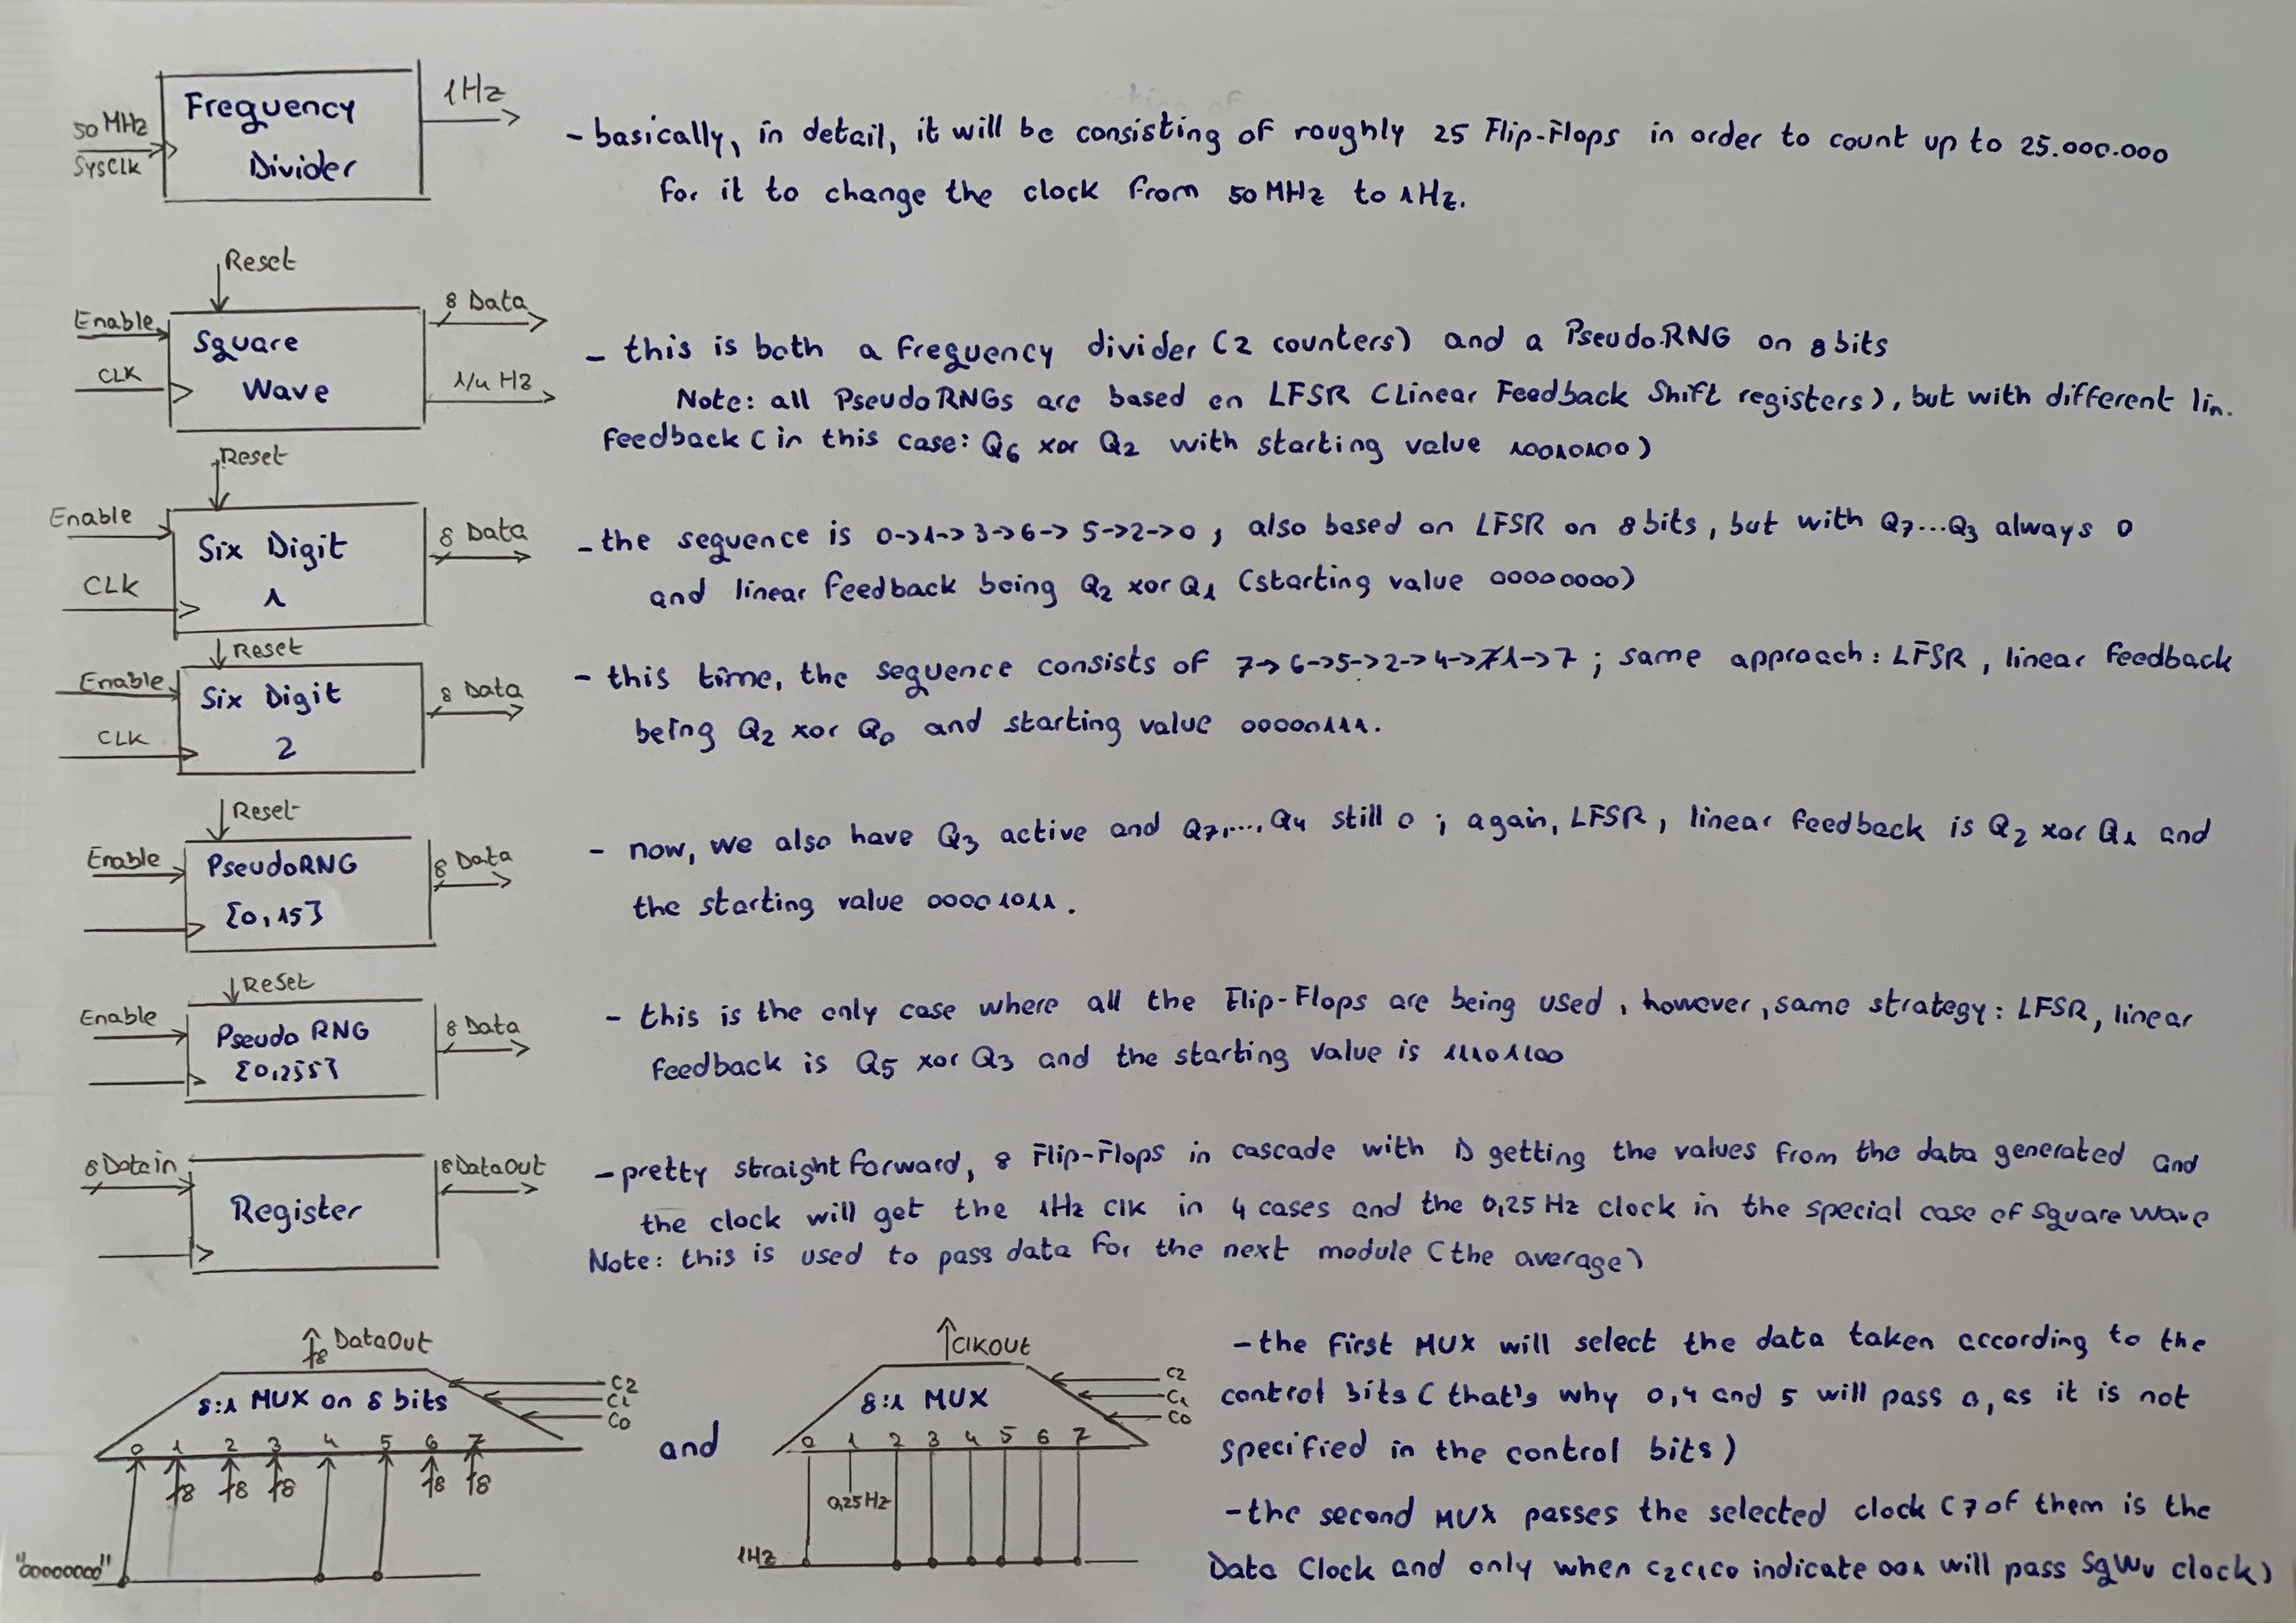 Frequency
Divider
50 MHz
SysClk
1Hz
- basically, in detail, it will be consisting of roughly 25 Flip-Flops in order to count up to 25.000.000
for it to change the clock from 50 MHz to 1Hz.
Reset
Enable
CLK
Square
Wave
8 Data
1/4 HZ
- this is both a frequency divider (2 counters) and a Pseudo.RNG on 8 bits
Note: all PseudoRNGs are based on LFSR (Linear Feedback Shift registers), but with different lin.
feedback (in this case: Q6 xor Q2 with starting value 10010100)
Reset
Enable
CLK
Six Digit
1
8 Data
- the sequence is 0->1->3->6->5->2->0 ; also based on LFSR on 8 bits, but with Q7...Q3 always 0
and linear feedback being Q2 xor Q1 (starting value 00000000)
Reset
Enable
CLK
Six Digit
2
8 Data
- this time, the sequence consists of 7->6->5->2->4->1->7 ; same approach: LFSR, linear feedback
being Q2 xor Q0 and starting value 00000111.
Reset
Enable
PseudoRNG
[0,15]
8 Data
- now, we also have Q3 active and Q7,..., Q4 still 0 ; again, LFSR, linear feedback is Q2 xor Q1 and
the starting value 00001011.
Reset
Enable
Pseudo RNG
[0,255]
8 Data
- this is the only case where all the Flip-Flops are being used, however, same strategy: LFSR, linear
feedback is Q5 xor Q3 and the starting value is 11101100
8 Data in
Register
8 DataOut
- pretty straightforward, 8 Flip-Flops in cascade with D getting the values from the data generated and
the clock will get the 1Hz clk in 4 cases and the 0,25 Hz clock in the special case of Square Wave
Note: this is used to pass data for the next module (the average)
8 DataOut
8:1 MUX on 8 bits
C2
C1
C0
0 1 2 3 4 5 6 7
8 8 8 8 8
"00000000"
and
ClkOut
8:1 MUX
C2
C1
C0
0 1 2 3 4 5 6 7
0,25 Hz
1Hz
- the first MUX will select the data taken according to the
control bits (that's why 0,4 and 5 will pass 0, as it is not
specified in the control bits)
- the second MUX passes the selected clock (7 of them is the
Data Clock and only when C2C1C0 indicate 001 will pass SqWv clock)